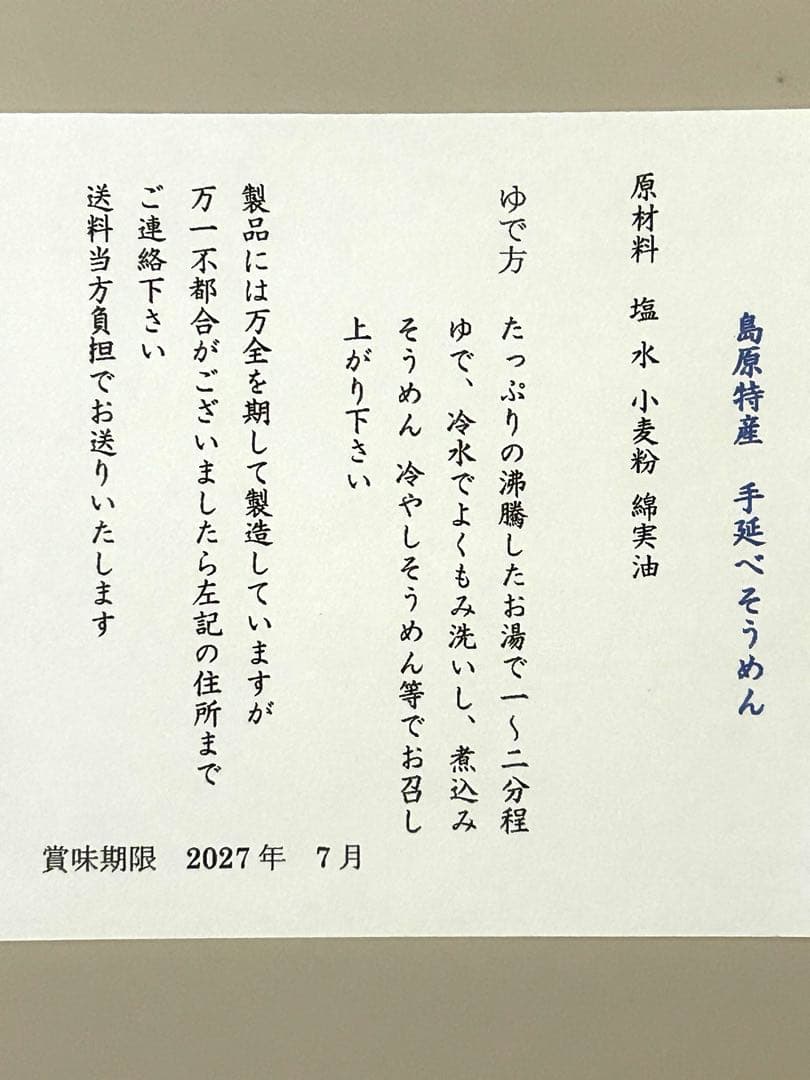 島原特産　手延べそうめん
原材料　塩 水 小麦粉 綿実油
ゆで方　たっぷりの沸騰したお湯で一～二分程
ゆで、冷水でよくもみ洗いし、煮込み
そうめん 冷やしそうめん等でお召し
上がり下さい
製品には万全を期して製造していますが
万一不都合がございましたら左記の住所まで
ご連絡下さい
送料当方負担でお送りいたします
賞味期限　2027年　7月